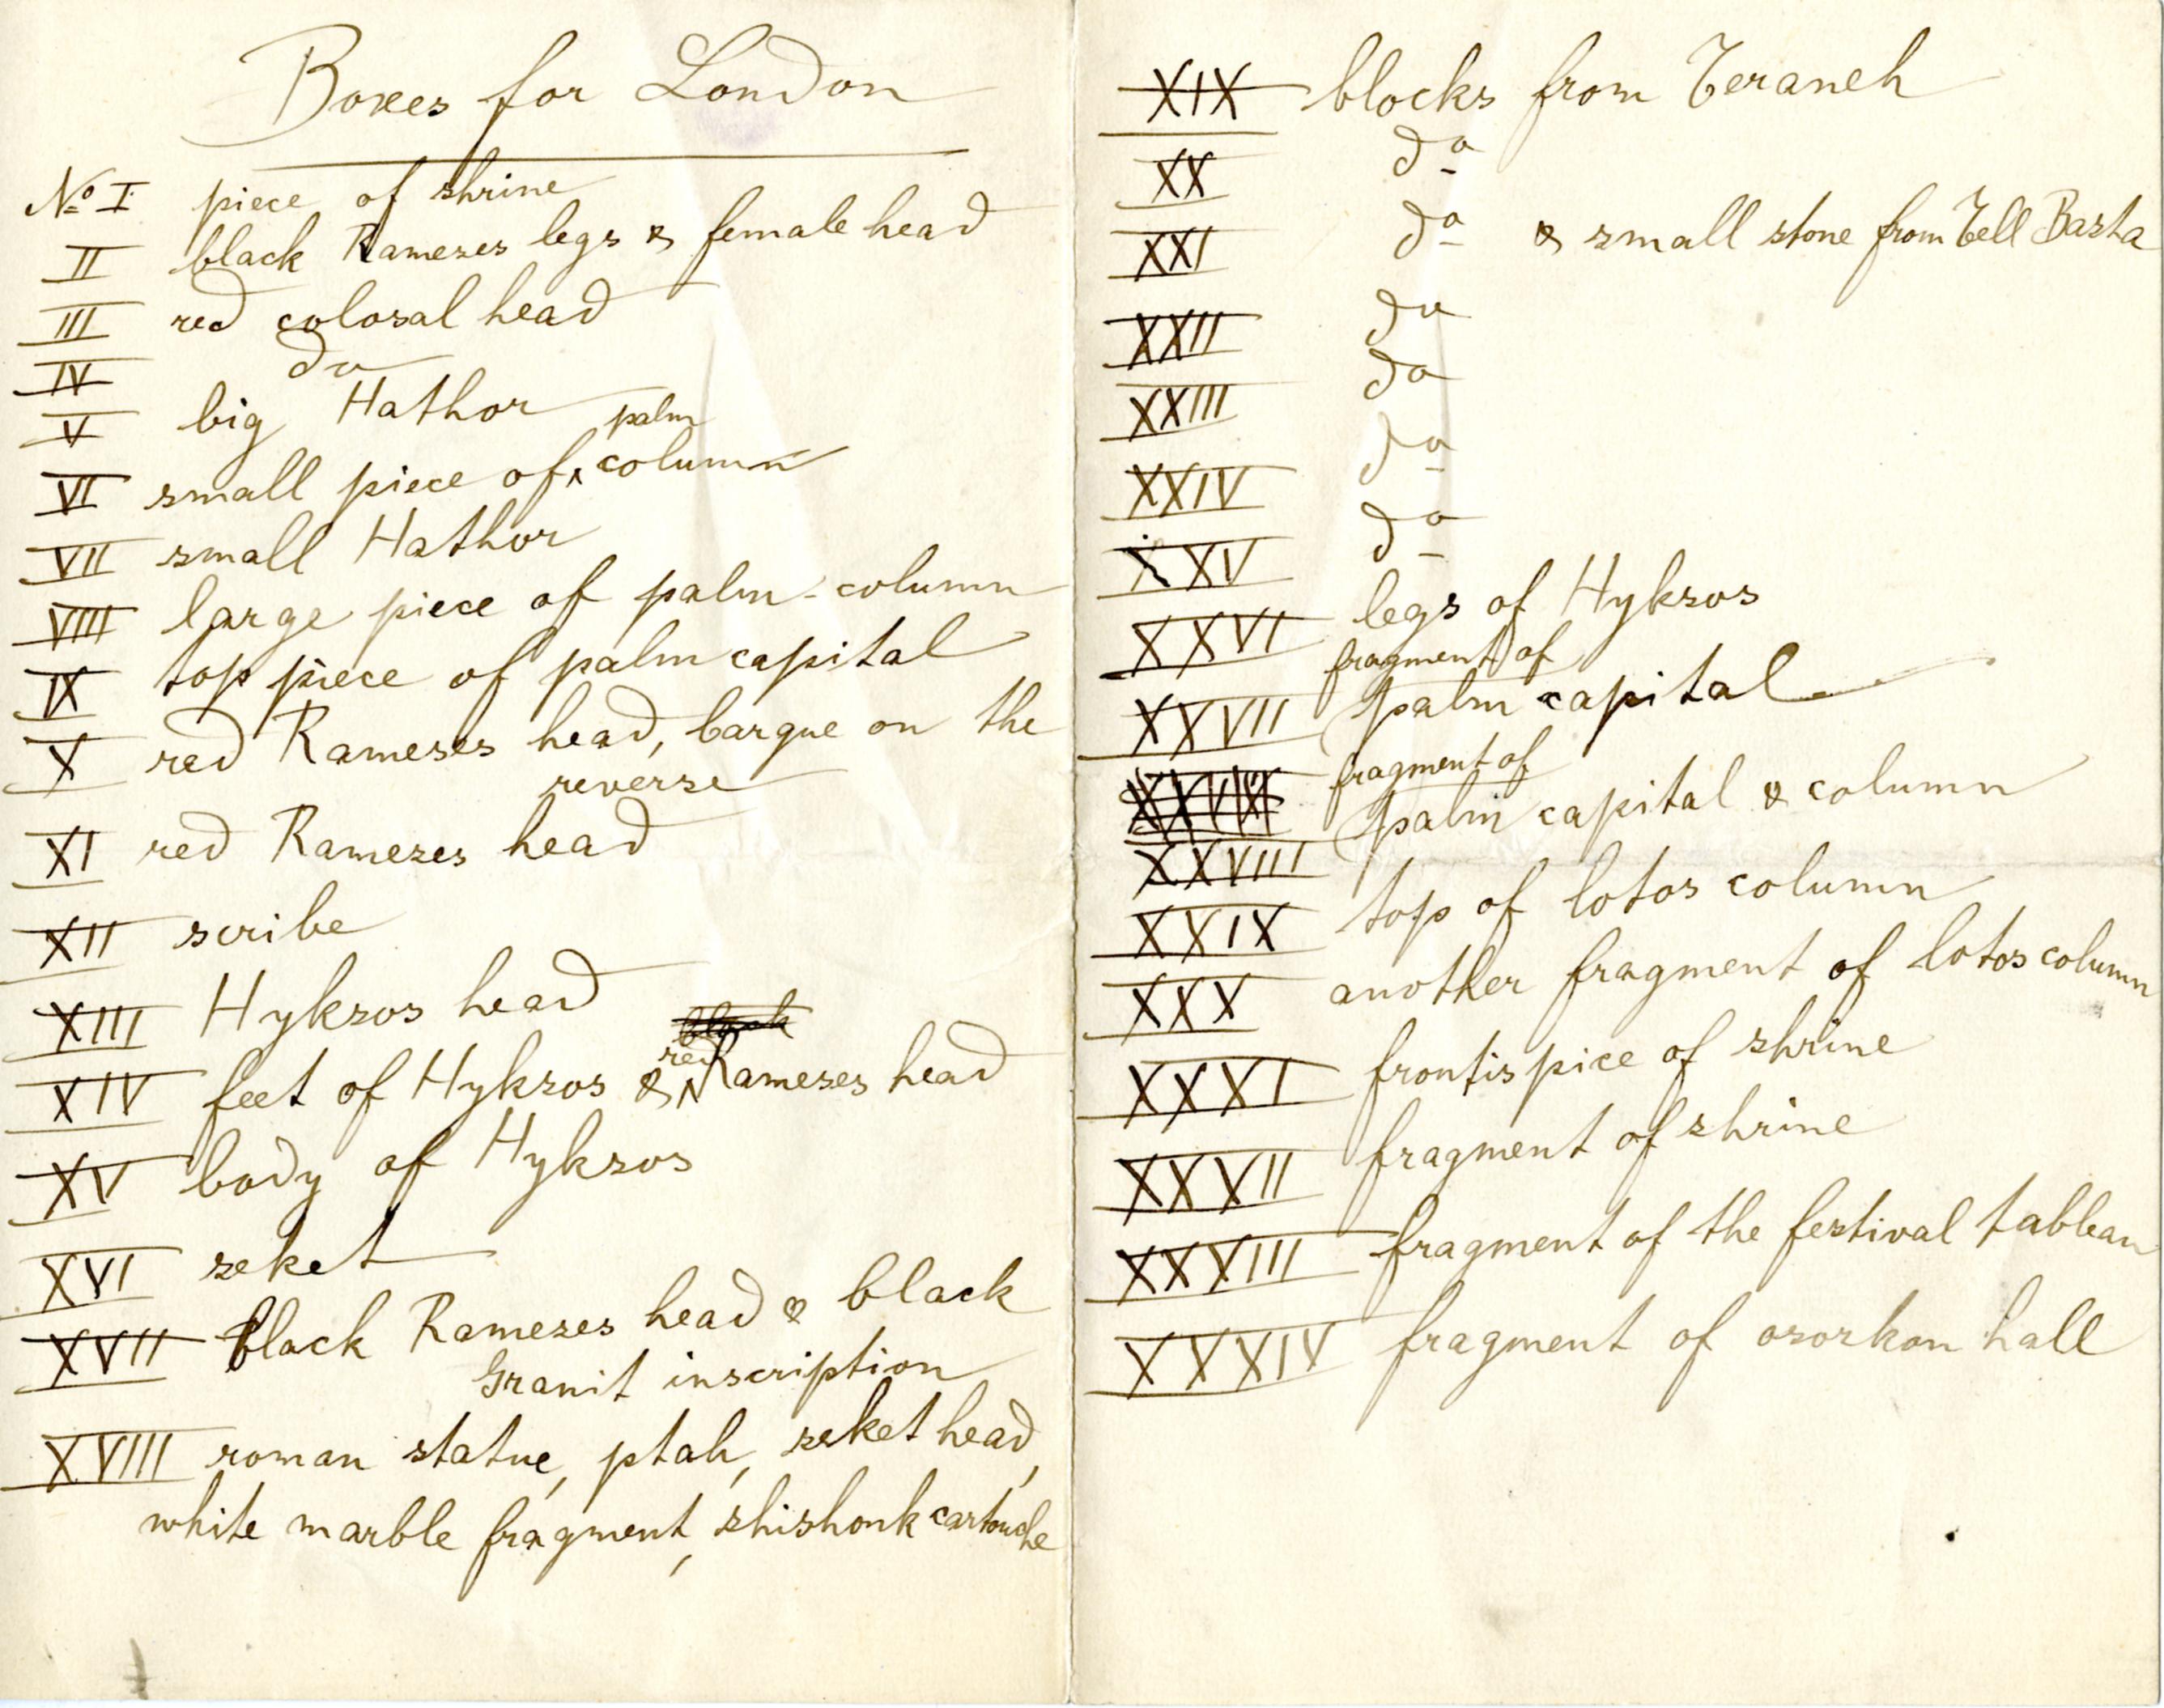 Boxes for London
No I piece of shrine
II black Rameses legs & female head
III red colosal head
IV do
V big Hathor
VI small piece of palm column
VII small Hathor
VIII large piece of palm-column
IX top piece of palm capital
X red Rameses head, barque on the
reverse
XI red Rameses head
XII scribe
XIII Hyksos head
XIV feet of Hyksos & black red Rameses head
XV body of Hyksos
XVI seket
XVII black Rameses head & black
Granit inscription
XVIII roman statue, ptah, seket head,
white marble fragment, shishonk cartouche
XIX blocks from Teraneh
XX do
XXI do & small stone from Tell Basta
XXII do
XXIII do
XXIV do
XXV do
XXVI legs of Hyksos
fragment of
XXVII palm capital
fragment of
palm capital & column
XXVIII
XXIX top of lotos column
XXX another fragment of lotos column
XXXI frontispice of shrine
XXXII fragment of shrine
XXXIII fragment of the festival tableau
XXXIV fragment of osorkon hall